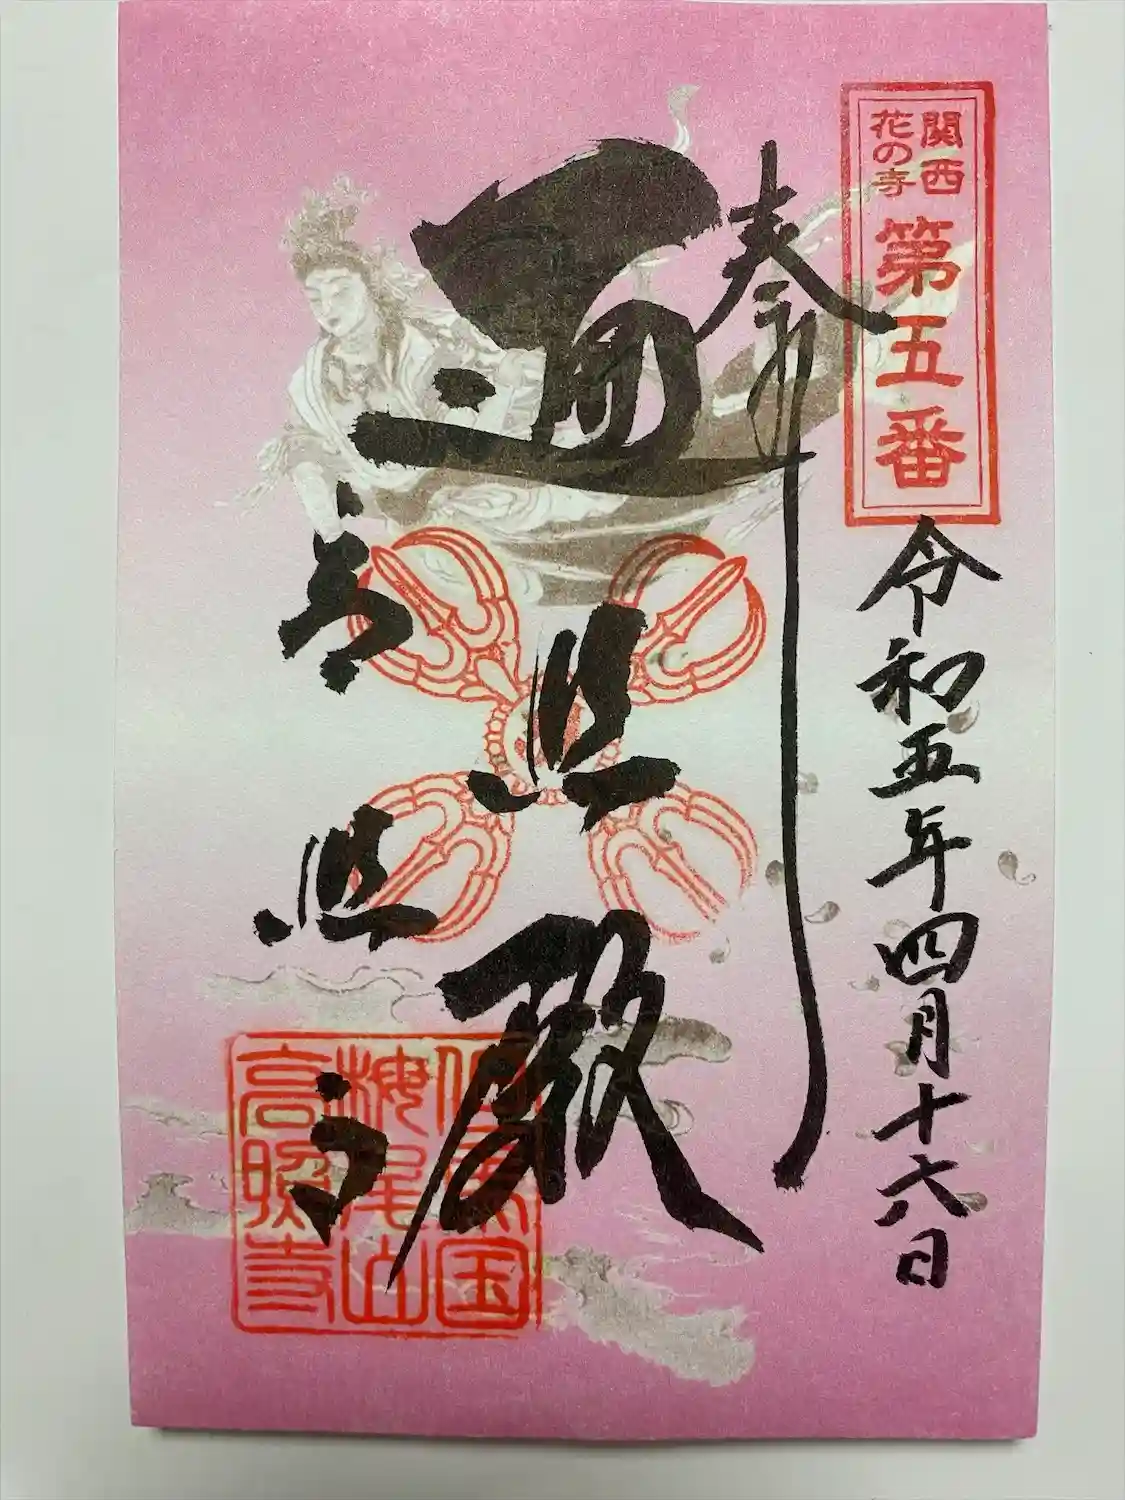 関西
花の寺
第五番
奉拝
令和五年四月十六日
遍照殿
高照寺
但馬国
椥尾山
高照寺